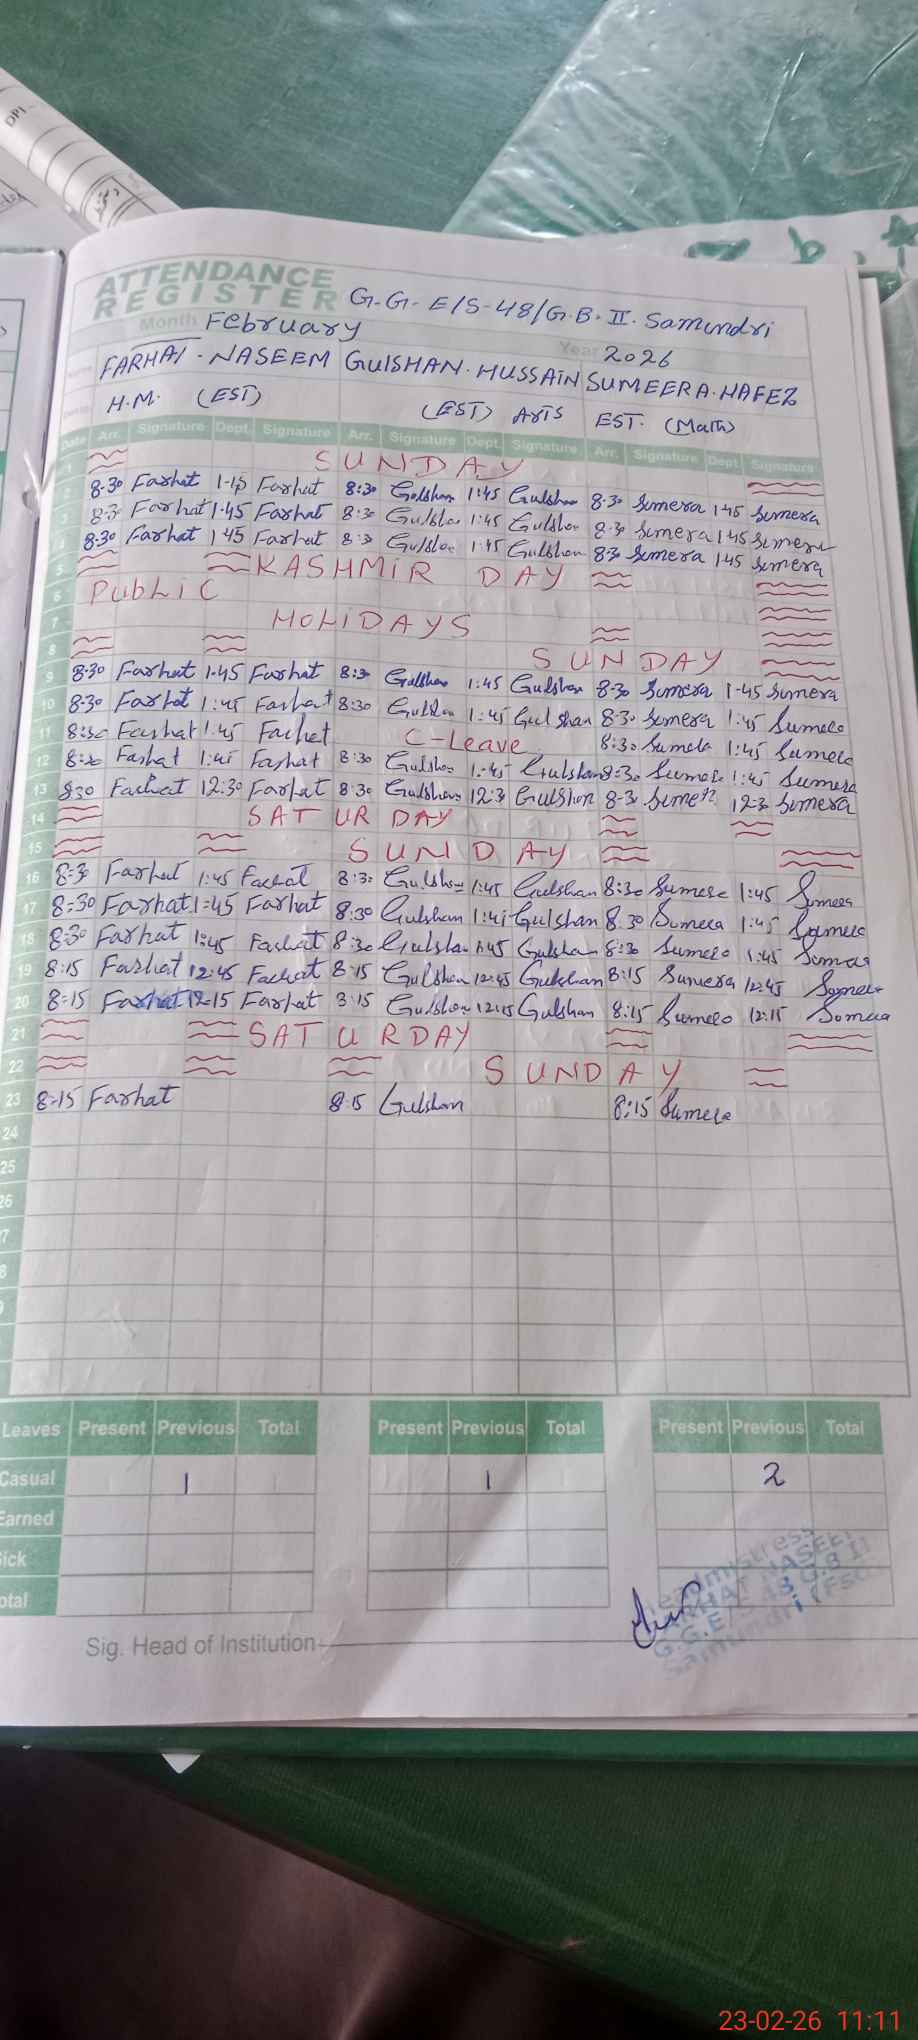 DPI-
ATTENDANCE
REGISTER G.G.E/S-48/G.B.II.Samundri
Month February
Year 2026
FARHAT.NASEEM GULSHAN.HUSSAIN SUMEERA.HAFEZ
H.M. (EST) (EST) ARTS EST. (Math)
Date Arr. Signature Dept. Signature Arr. Signature Dept. Signature Arr. Signature Dept. Signature
1 SUNDAY
2 8:30 Farhat 1-15 Farhat 8:30 Gulshan 1:45 Gulshan 8-30 Sumera 1-45 Sumera
3 8-30 Farhat 1-45 Farhat 8:30 Gulshan 1:45 Gulshan 8-30 Sumera 1-45 Sumera
4 8:30 Farhat 1-45 Farhat 8:30 Gulshan 1:45 Gulshan 8-30 Sumera 1-45 Sumera
5 KASHMIR DAY
6 PUBLIC
7 HOLIDAYS
8 SUNDAY
9 8-30 Farhat 1-45 Farhat 8:30 Gulshan 1:45 Gulshan 8-30 Sumera 1-45 Sumera
10 8-30 Farhat 1:45 Farhat 8:30 Gulshan 1:45 Gulshan 8-30 Sumera 1:45 Sumera
11 8:30 Farhat 1:45 Farhat C-Leave 8:30 Sumera 1:45 Sumera
12 8:30 Farhat 1:45 Farhat 8:30 Gulshan 1:45 Gulshan 8:30 Sumera 1:45 Sumera
13 8:30 Farhat 12:30 Farhat 8:30 Gulshan 12:30 Gulshan 8-30 Sumera 12:30 Sumera
14 SATURDAY
15 SUNDAY
16 8:30 Farhat 1:45 Farhat 8:30 Gulshan 1:45 Gulshan 8:30 Sumera 1:45 Sumera
17 8:30 Farhat 1:45 Farhat 8:30 Gulshan 1:45 Gulshan 8.30 Sumera 1:45 Sumera
18 8:30 Farhat 1:45 Farhat 8:30 Gulshan 1:45 Gulshan 8:30 Sumera 1:45 Sumera
19 8:15 Farhat 12:45 Farhat 8:15 Gulshan 12:45 Gulshan 8:15 Sumera 12:45 Sumera
20 8:15 Farhat 12:15 Farhat 8:15 Gulshan 12:15 Gulshan 8:15 Sumera 12:15 Sumera
21 SATURDAY
22 SUNDAY
23 8:15 Farhat 8:15 Gulshan 8:15 Sumera
24
25
26
Leaves Present Previous Total Present Previous Total Present Previous Total
Casual 1 1 2
Earned
Sick
Total
Headmistress
FARHAT NASEEM
G.G.E/S 48 G.B II
Samundri (Fsd)
Sig. Head of Institution
23-02-26 11:11